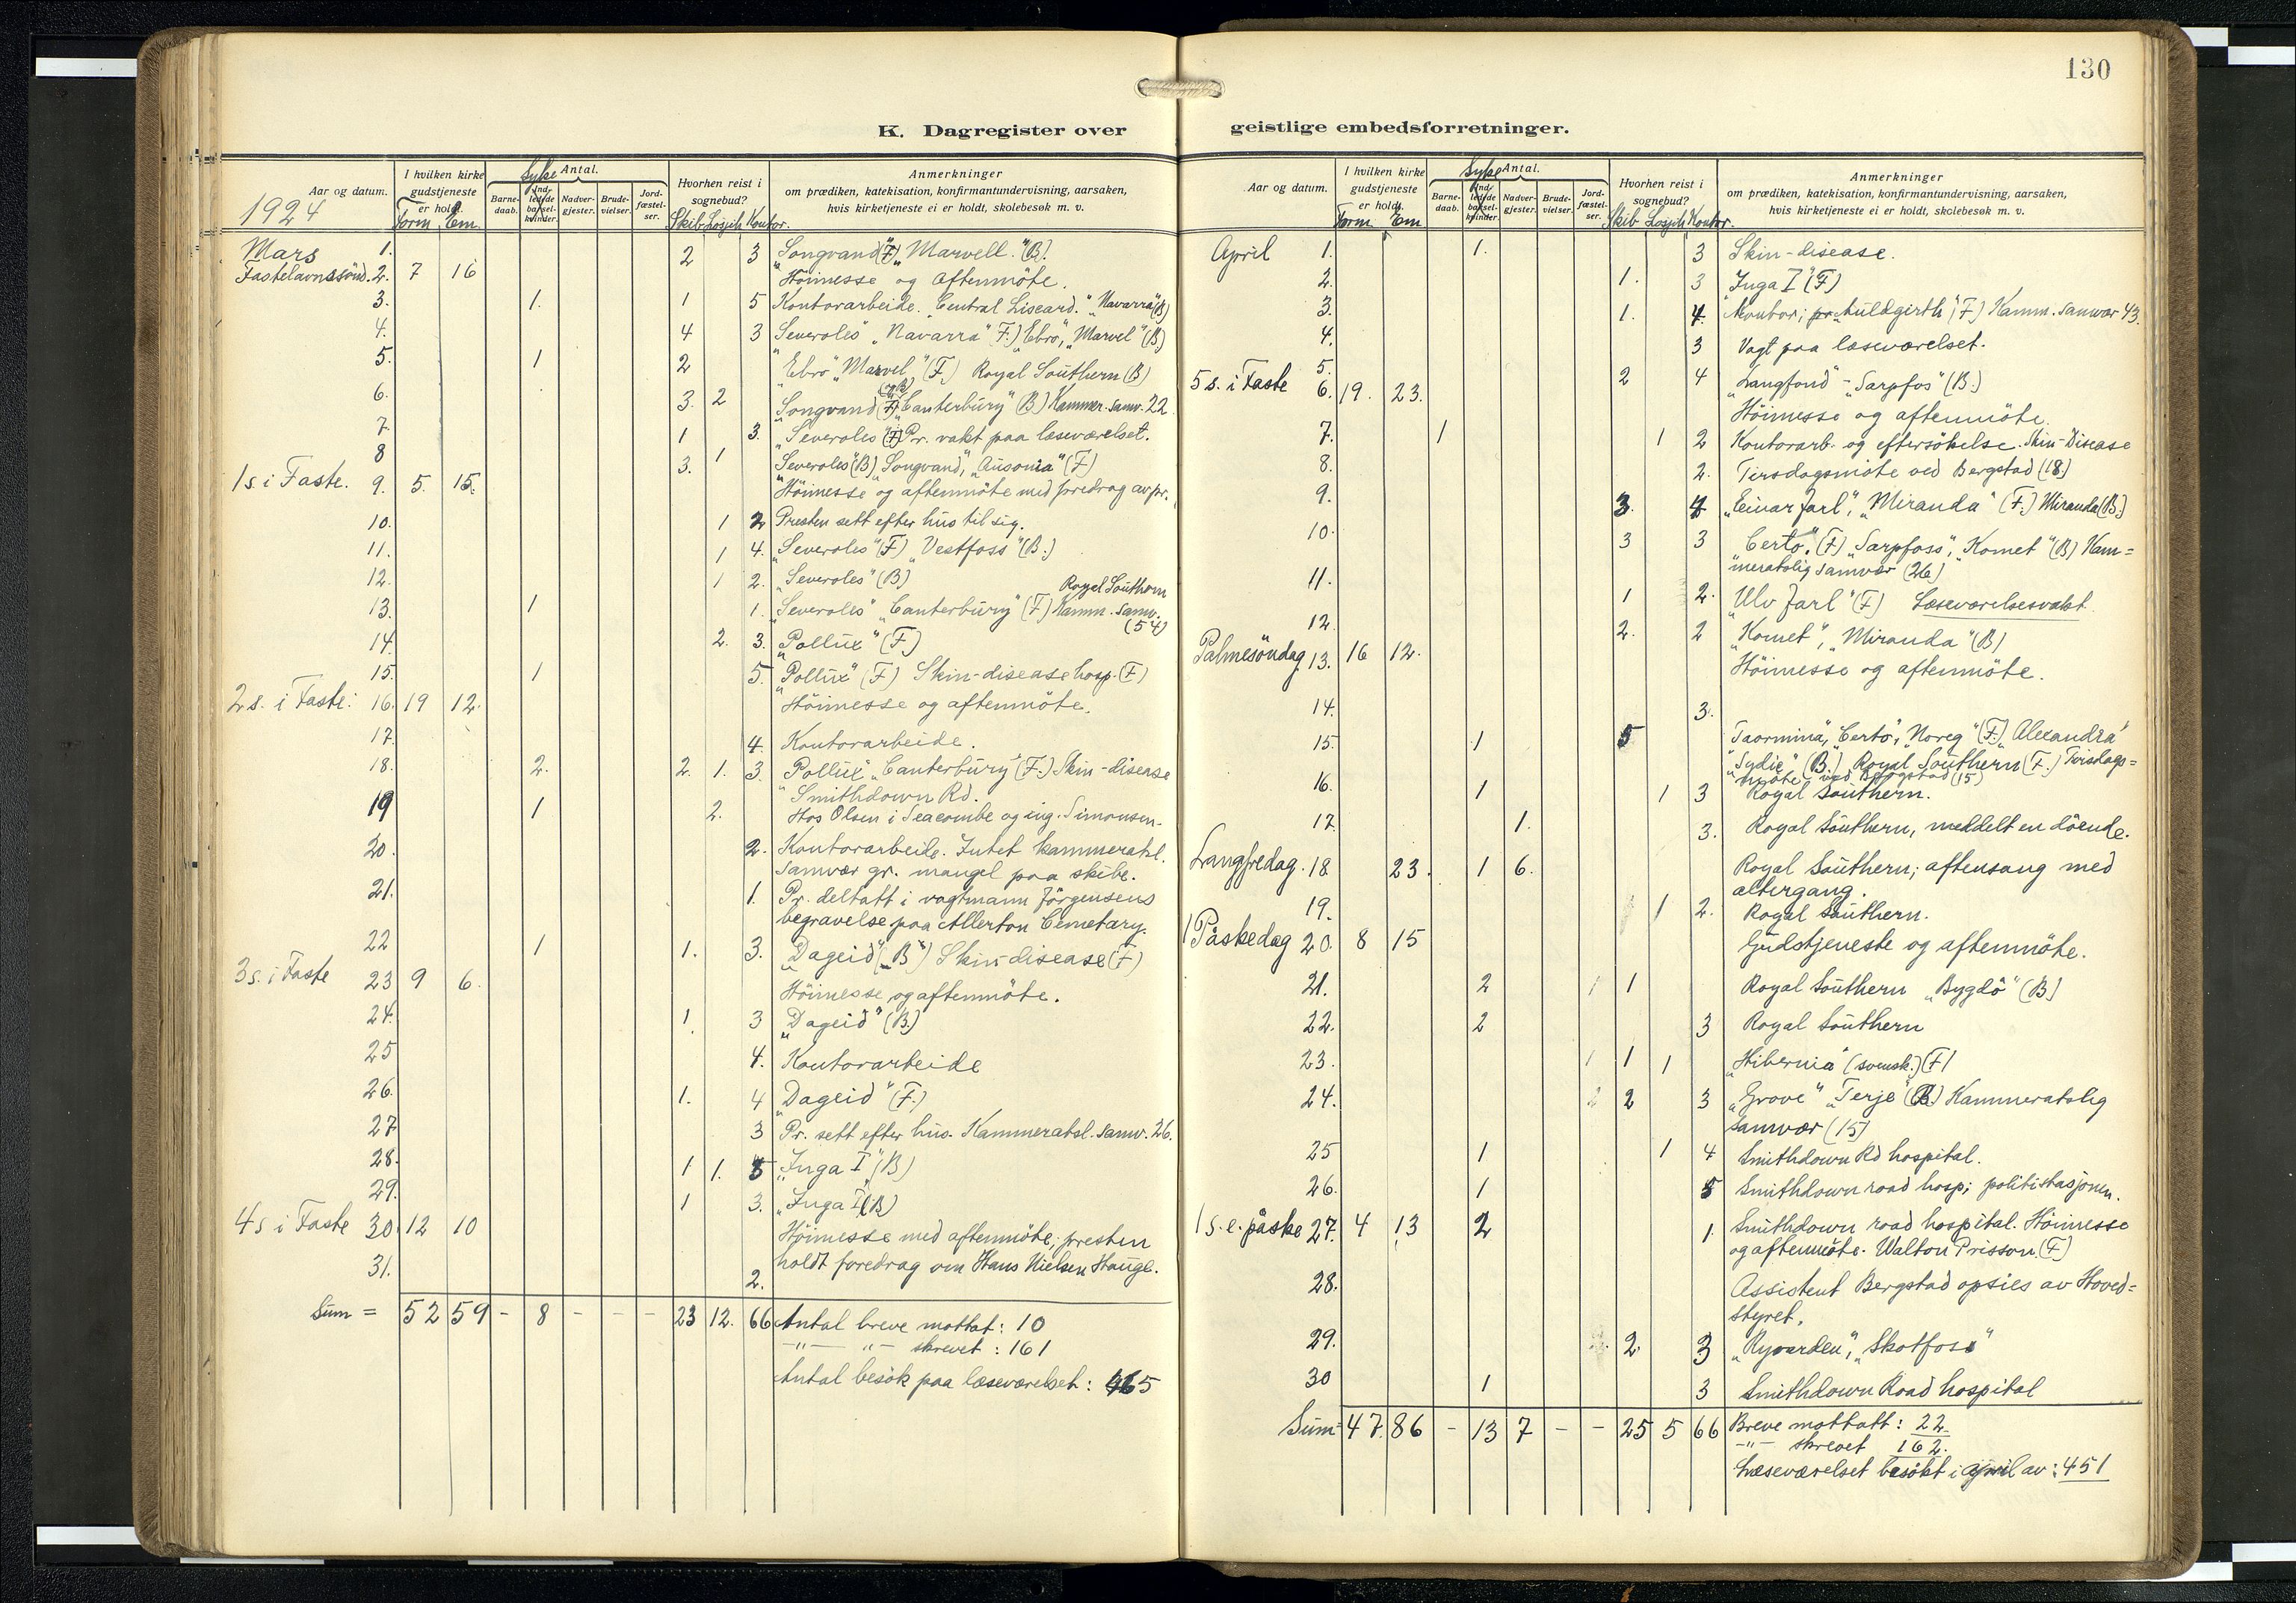 130
K. Dagregister over
geistlige embedsforretninger.
Aar og datum.
1924
I hvilken kirke gudstjeneste er holdt.
Form. Em.
Syke Antal.
Barne-daab.
Ind-ledede barsel-kvinder.
Nadver-gjester.
Brude-vielser.
Jord-fæstel-ser.
Hvorhen reist i sognebud?
Skib Losjih Kontor.
Anmerkninger
om prædiken, katekisation, konfirmantundervisning, aarsaken,
hvis kirketjeneste ei er holdt, skolebesøk m. v.
Mars 1. 2 3 "Songvand" (F) "Marvell." (B).
Fastelavnssönd. 2. 7 16 Höimesse og aftenmöte.
3. 1. 1 5 Kontorarbeide. Central Liscard. "Navarra" (B)
4. 4 3 "Severoles" "Navarra" (F.) "Ebro", "Marvel" (B.)
5. 1 2 "Ebro" "Marvel" (F.) Royal Southern (B)
6. 3. 2 "Songvand" (F) (og B) "Canterbury" (B) Kammer. samv. 22
7. 1 3. "Severoles" (F) Pr. vakt paa læseværelset.
8 3. 1 "Severoles" (B) "Songvand", "Ausonia" (F)
1 s. i Faste. 9. 5. 15. Höimesse og aftenmöte med foredrag av pr.
10. 1 2 Presten sett efter hus til sig.
11. 1 4. "Severoles" (F) "Vestfoss" (B.)
12. 1 2. "Severoles" (B)
Royal Southern
13. 1 1. "Severoles" "Canterbury" (F) Kamm. samv.
(54)
14. 2. 3. "Pollux" (F.)
15. 1 5. "Pollux" (F) Skin-disease hosp. (F)
2 s. i Faste: 16. 19 12. Höimesse og aftenmöte.
17. 4. Kontorarbeide.
18. 2. 2. 1. 3. "Pollux" "Canterbury" (F.) Skin-disease
Smithdown Rd.
19 1 2. Hos Olsen i Seacombe og ing. Simonsen.
20. 2. Kontorarbeide. Intet kammeratsl.
samvær gr. mangel paa skibe.
21. 1. Pr. deltatt i vagtmann Jörgensens
begravelse paa Allerton Cemetary.
22 1 1. 3. "Dageid" (B) Skin-disease (F)
3 s. i Faste 23 9 6. Höimesse og aftenmöte.
24. 1. 3 "Dageid" (B.)
25 4. Kontorarbeide
26. 1. 4 "Dageid" (F.)
27 3 Pr. sett efter hus. Kammeratsl. samv. 26.
28. 1 1. 5 "Inga I" (B)
29. 1 3. "Inga I" (B)
4 s i Faste 30. 12 10 Höimesse med aftenmöte; presten
31. 2. holdt foredrag om Hans Nielsen Hauge.
Sum = 52 59 - 8 - - - 23 12. 66 Antal breve mottat: 10
-"- "- skrevet : 161
Antal besök paa læseværelset: 465
Aar og datum.
I hvilken kirke gudstjeneste er holdt.
Form. Em
Syke Antal.
Barne-daab.
Ind-ledede barsel-kvinder.
Nadver-gjester.
Brude-vielser.
Jord-fæstel-ser.
Hvorhen reist i sognebud?
Skib Losjih Kontor.
Anmerkninger
om prædiken, katekisation, konfirmantundervisning, aarsaken,
hvis kirketjeneste ei er holdt, skolebesøk m. v.
April 1. 1. 3 Skin-disease.
2. 1. 3 "Inga I" (F)
3. 1. 4. Kontor; "Auldgirth" (F) Kamm. samvær 43.
4. 3 Vagt paa læseværelset.
5. 2 4 "Langfond" - "Sarpfos" (B.)
5 s. i Faste 6. 19. 23. Höimesse og aftenmöte.
7. 1 1 2 Kontorarb. og eftersökelse. Skin-Disease
8. 2. Tirsdagsmöte ved Bergstad (18.)
9. 3. 4 "Einar Jarl", "Miranda" (F.) Miranda (B.)
10. 3 3 "Certo." (F) "Sarpfoss", "Komet" (B) Kam=
meratslig samvær (26)
11. 1 2. "Ulv Jarl" (F) Læseværelsesvakt
12. 2. 2 "Komet", "Miranda" (B)
Palmesöndag 13. 16 12. Höimesse og aftenmöte.
14. 3.
15. 1 5 "Taormina", "Certo", "Noreg" (F.) "Alexandra"
"Sydic" (B.) Royal Southern (F.) Tirsdags=
möte ved Bergstad (15)
16. 1 1 3 Royal Southern.
17 1. 3. Royal Southern, meddelt en döende.
Langfredag. 18. 23. 1 6. Royal Southern; aftensang med
altergang.
19. 1 2. Royal Southern.
1 Påskedag 20. 8 15 Gudstjeneste og aftenmöte.
21. 2 1 1 Royal Southern "Bygdö" (B)
22. 2 3 Royal Southern
23. 1 1 1 "Hibernia" (svensk.) (F)
24. 2 2 3 "Grove" "Terje" (B) Kammeratslig
samvær (15)
25 1 1 4 Smithdown Rd hospital.
26. 1 5 Smithdown road hosp; politistasjonen.
1 s. e. påske 27. 4 13 2 1. Smithdown road hospital. Höimesse
og aftenmöte. Walton Prisson. (F)
28. Assistent Bergstad opsies av Hoved=
styret.
29. 2. 3 "Ryvarden", "Skotfoss"
30 1 3 Smithdown Road hospital
Sum= 47. 86 - 13 7 - - 25 5 66 Breve mottatt: 22.
-"- skrevet 162.
Læseværelset besökt i april av: 451